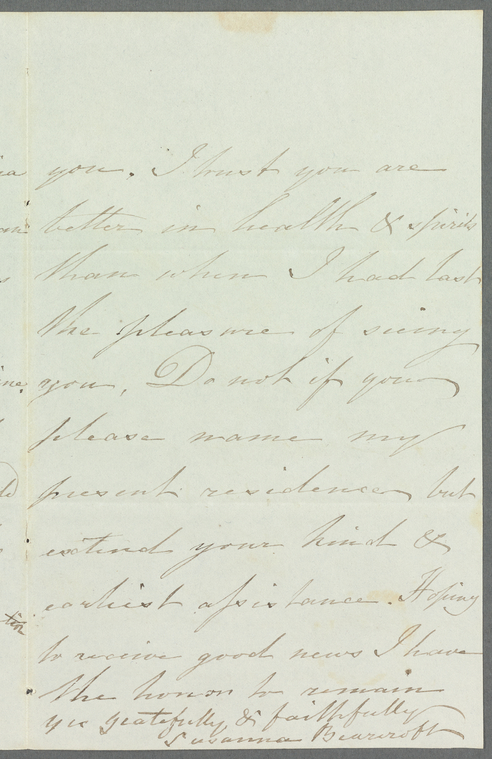 you. I trust you are
better in health & spirits
than when I had last
the pleasure of seeing
you, Do not if you
please name my
present residence but
extend your kind &
earliest assistance. Hoping
to receive good news I have
the honor to remain
yrs gratefully & faithfully
Susanna Bearcroft